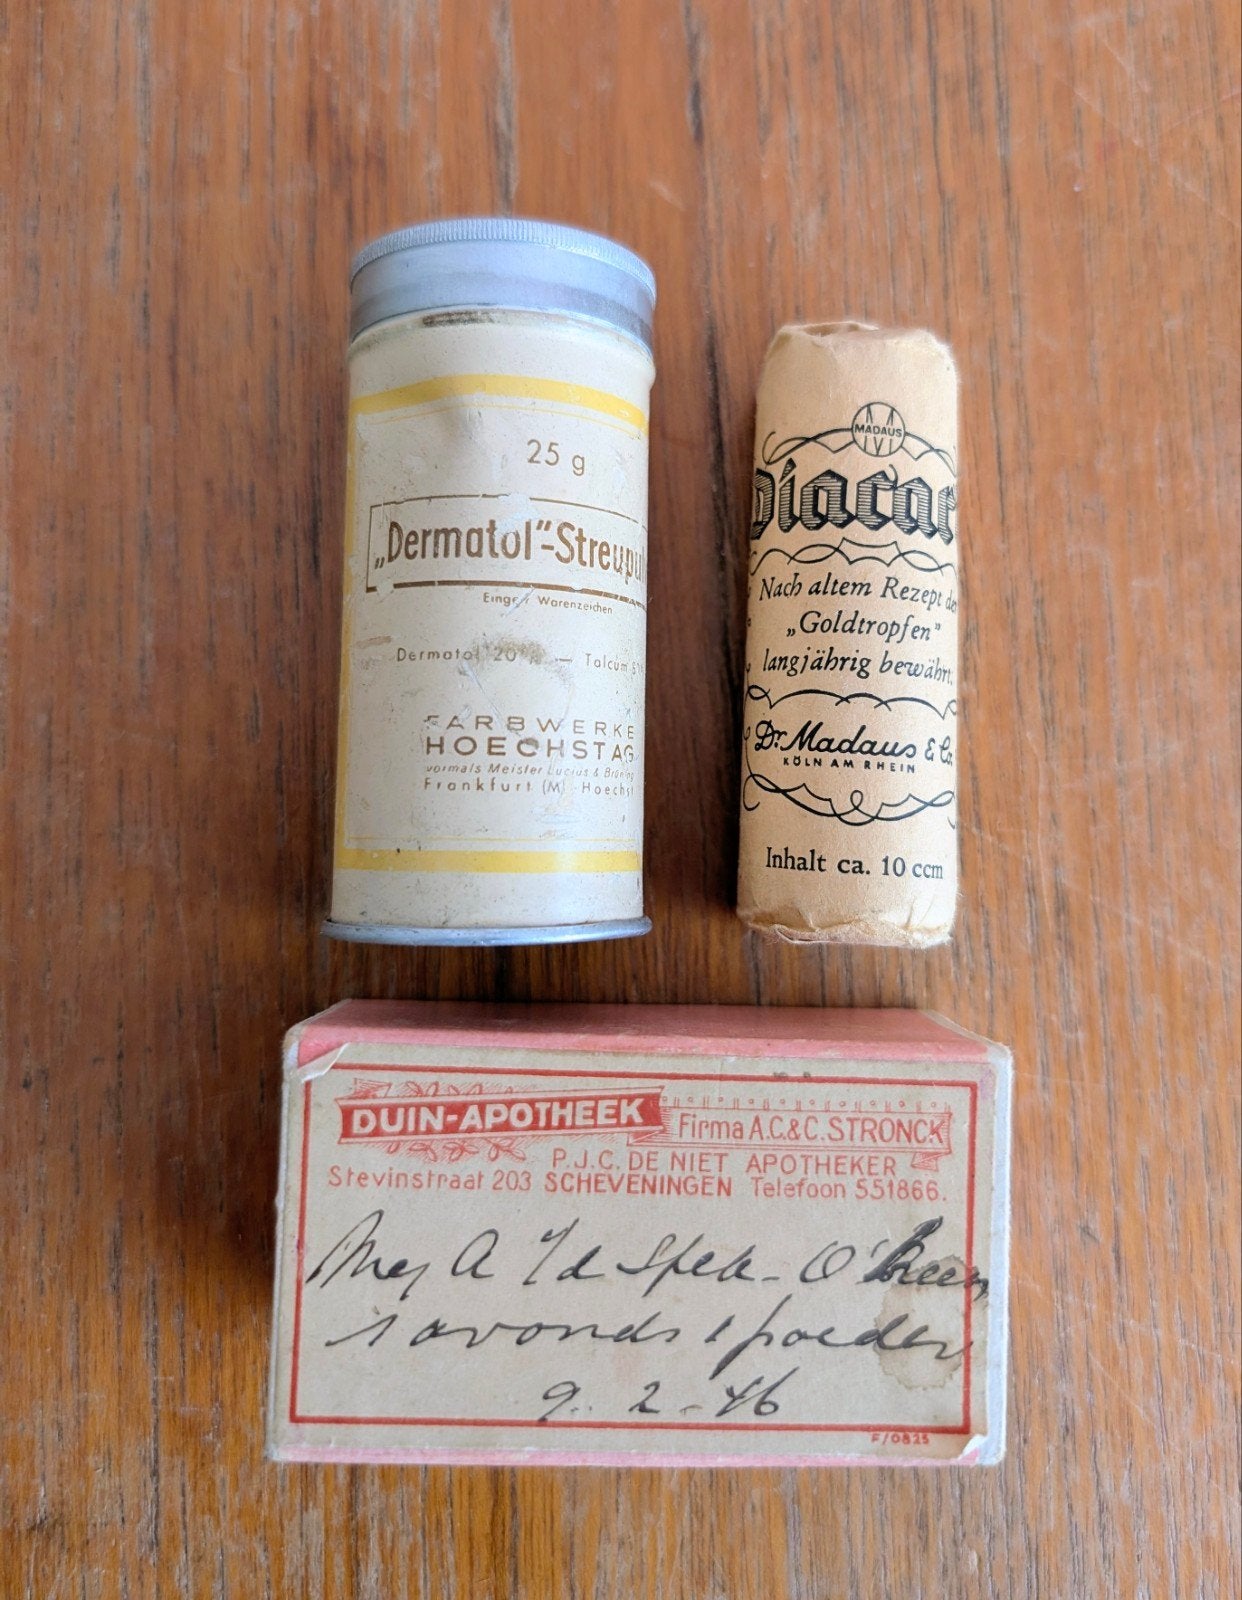 25 g
„Dermatol"-Streupu
Einge Warenzeichen
Dermatol 20 — Talcum
FARBWERKE
HOECHST AG
vormals Meister Lucius & Brüning
Frankfurt (M) - Hoechst
MADAUS
Diacar
Nach altem Rezept der
„Goldtropfen"
langjährig bewährt.
Dr. Madaus & Co.
KÖLN AM RHEIN
Inhalt ca. 10 ccm
DUIN-APOTHEEK Firma A.C.& C. STRONCK
P.J.C. DE NIET APOTHEKER
Stevinstraat 203 SCHEVENINGEN Telefoon 551866.
Mej A v/d Spek - O'
's avonds 1 poeder
9.. 2 - 46
F/0825